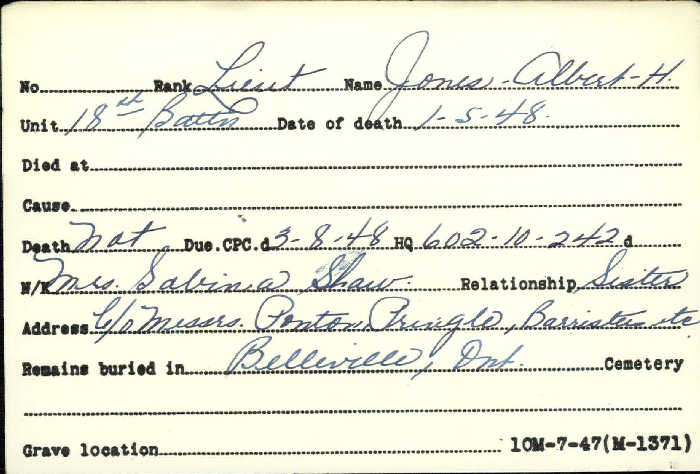 No. Rank Lieut Name Jones - Albert - H.
Unit 18th Battn Date of death 1-5-48.
Died at
Cause
Death Not Due. CPC.d 3-8-48 HQ 602-10-242 d
N/K Mrs Sabina Shaw. Relationship Sister
Address C/o Messrs. Ponton Pringle, Barristers etc
Remains buried in Belleville, Ont. Cemetery
Grave location 10M-7-47(M-1371)